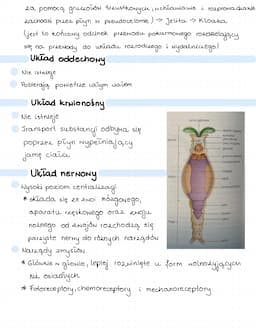 za pomocą gruczołów trawiennych, wchłanianie i rozprowadzanie
zachodzi przez płyn w pseudocelomie) → Jelito → Kloaka
(jest to końcowy odcinek przewodu pokarmowego rozdzielający
się na przewody do układu rozrodczego i wydalniczego)
Układ oddechowy
Nie istnieje
Pobierają powietrze całym ciałem
Układ krwionośny
Nie istnieje
Transport substancji odbywa się
poprzez płyn wypełniający
jamę ciała
Układ nerwowy
Wysoki poziom centralizacji
* składa się ze zwoi mózgowego,
aparatu wrzękowego oraz zwoju
nożnego od zwojów rozchodzą się
parzyste nerwy do różnych narządów
Narządy zmysłów
* Głównie w głowie, lepiej rozwinięte u form wolnożyjących
niż osiadłych
* Fotoreceptory, chemoreceptory i mechanoreceptory